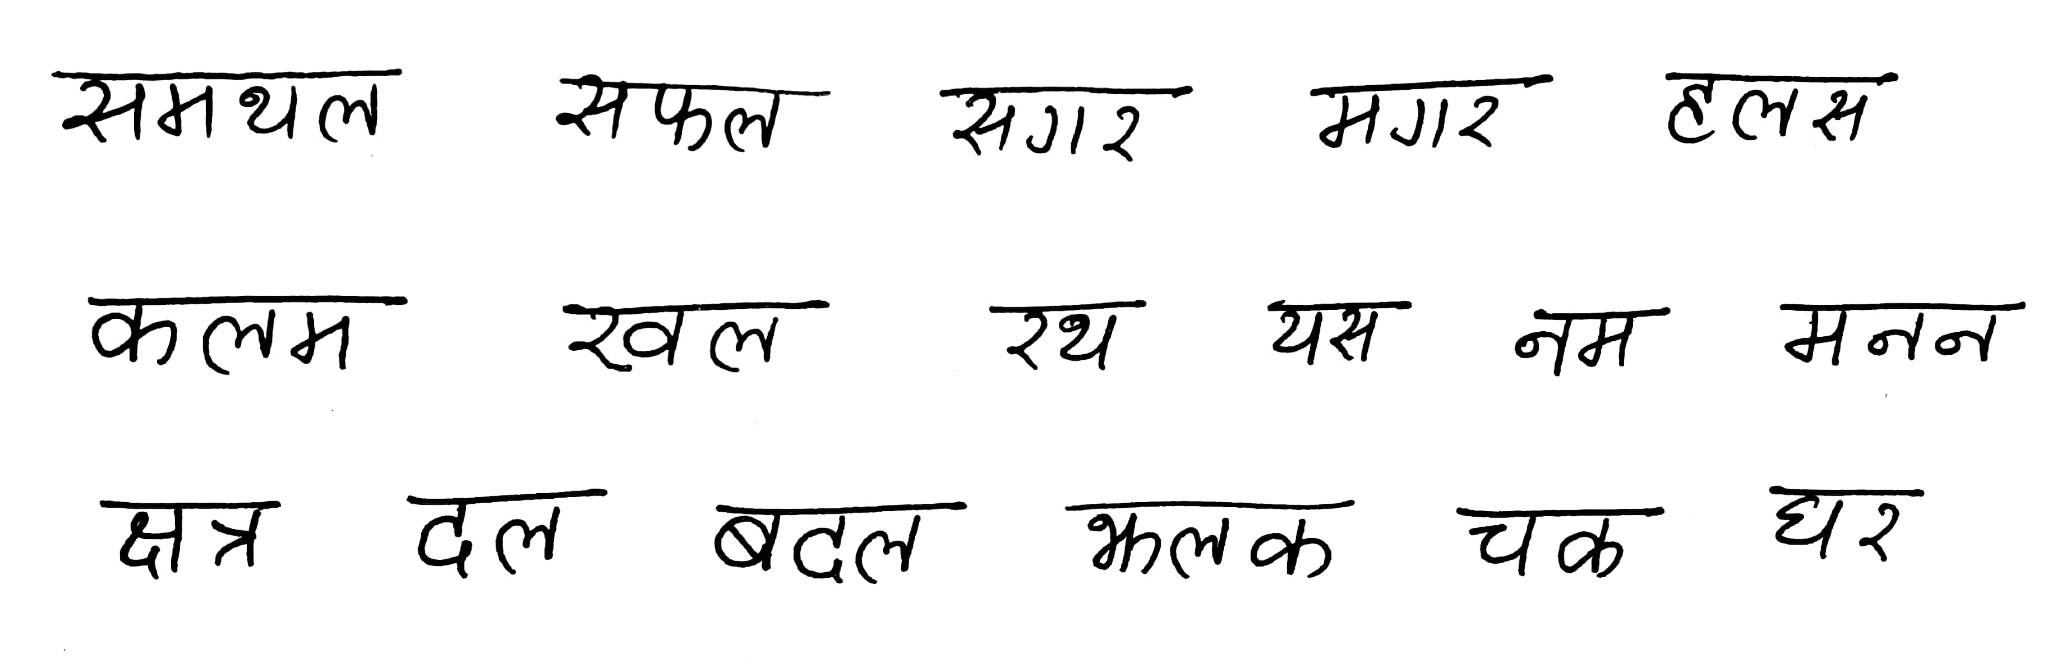 समथल सफल सगर मगर हलस
कलम खल रथ यस नम मनन
क्षत्र दल बदल झलक चक घर